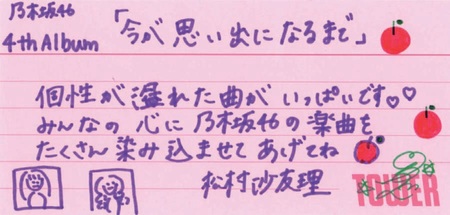 乃木坂46
4th Album 「今が思い出になるまで」
個性が溢れた曲がいっぱいです♡♡
みんなの心に乃木坂46の楽曲を
たくさん染み込ませてあげてね
松村沙友理
TOWER